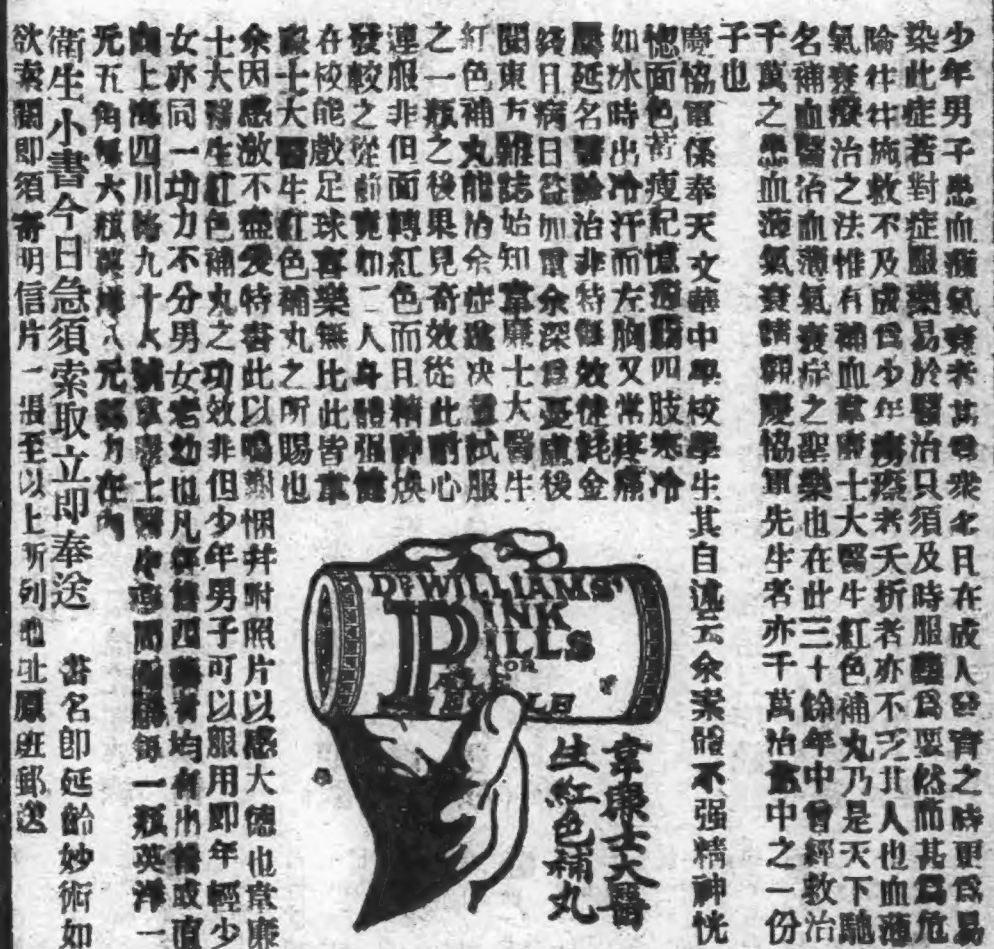 少年男子患血薄氣衰者甚爲衆多日在成人發育之時更爲易
染此症若對症服藥易於醫治只須及時服藥爲要然而甚爲危
險往往施救不及成爲少年癆瘵者夭折者亦不乏其人也血薄
氣衰療治之法惟有補血韋廉士大醫生紅色補丸乃是天下馳
名補血醫治血薄氣衰症之聖藥也在此三十餘年中曾經救治
千萬之患血薄氣衰請觀慶協軍先生者亦千萬治愈中之一份
子也
慶協軍係奉天文華中學校學生其自述云余素體不强精神恍
惚面色 瘦記憶 四肢寒冷
如冰時出冷汗而左胸又常疼痛
屢延名醫診治非特無效徒耗金
錢日病日益加重余深爲憂慮後
閱東方雜誌始知韋廉士大醫生
紅色補丸能治余症遂決意試服
之一瓶之後果見奇效從此耐心
連服非但面轉紅色而且精神焕
發較之從前竟如二人身體强健
在校能戲足球喜樂無比此皆韋
廉士大醫生紅色補丸之所賜也
余因感激不盡爰特書此以鳴謝悃并附照片以感大德也韋廉
士大醫生紅色補丸之功效非但少年男子可以服用即年輕少
女亦同一功力不分男女老幼也凡經售西藥者均有出售或直
向上海四川路九十六號韋廉士醫生藥局函購每一瓶英洋一
元五角每六瓶英洋八元郵力在內
衛生小書今日急須索取立即奉送 書名即延齡妙術如
欲索閱即須寄明信片一張至以上所列地址原班郵送
DR WILLIAMS'
PINK
PILLS
FOR
PALE
PEOPLE
韋廉士大醫
生紅色補丸